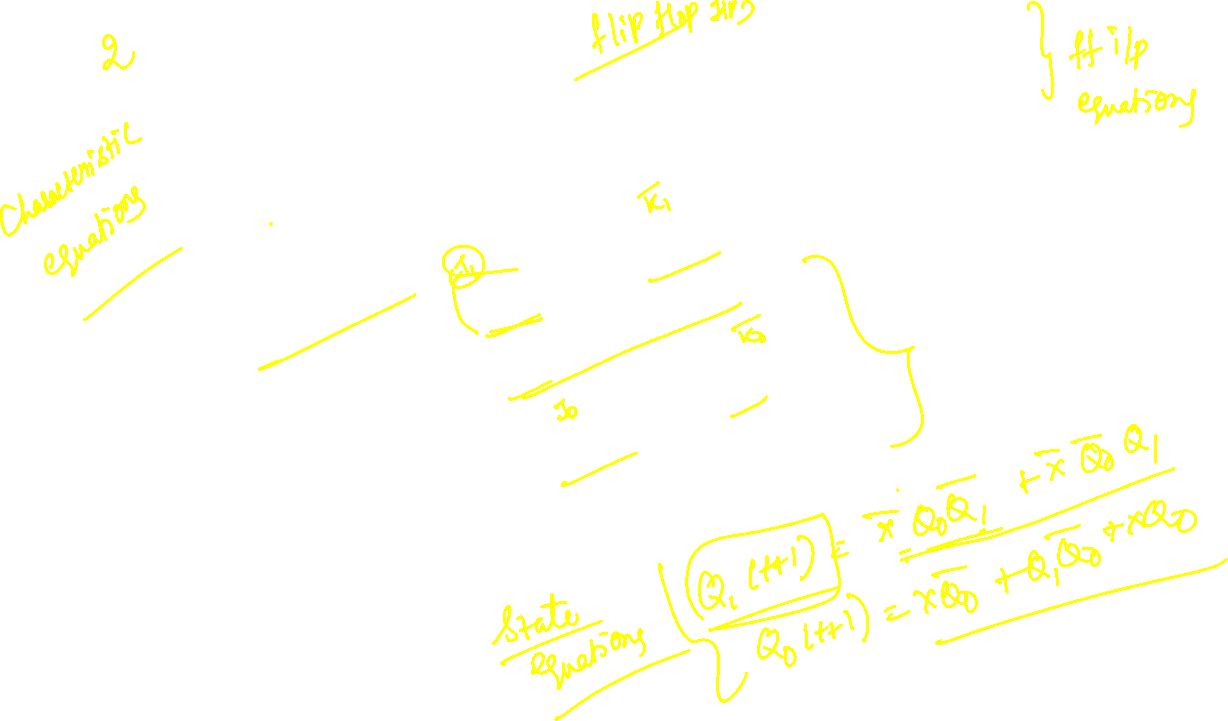 2
flip flop
} ff i/p
equations
Characteristic
equations
K̅₁
J₁
K̅₀
J₀
State
equations
Q₁(t+1) = x̅ Q₀Q̅₁ + x̅ Q̅₀ Q₁
Q₀(t+1) = xQ̅₀ + Q₁Q̅₀ + xQ₀